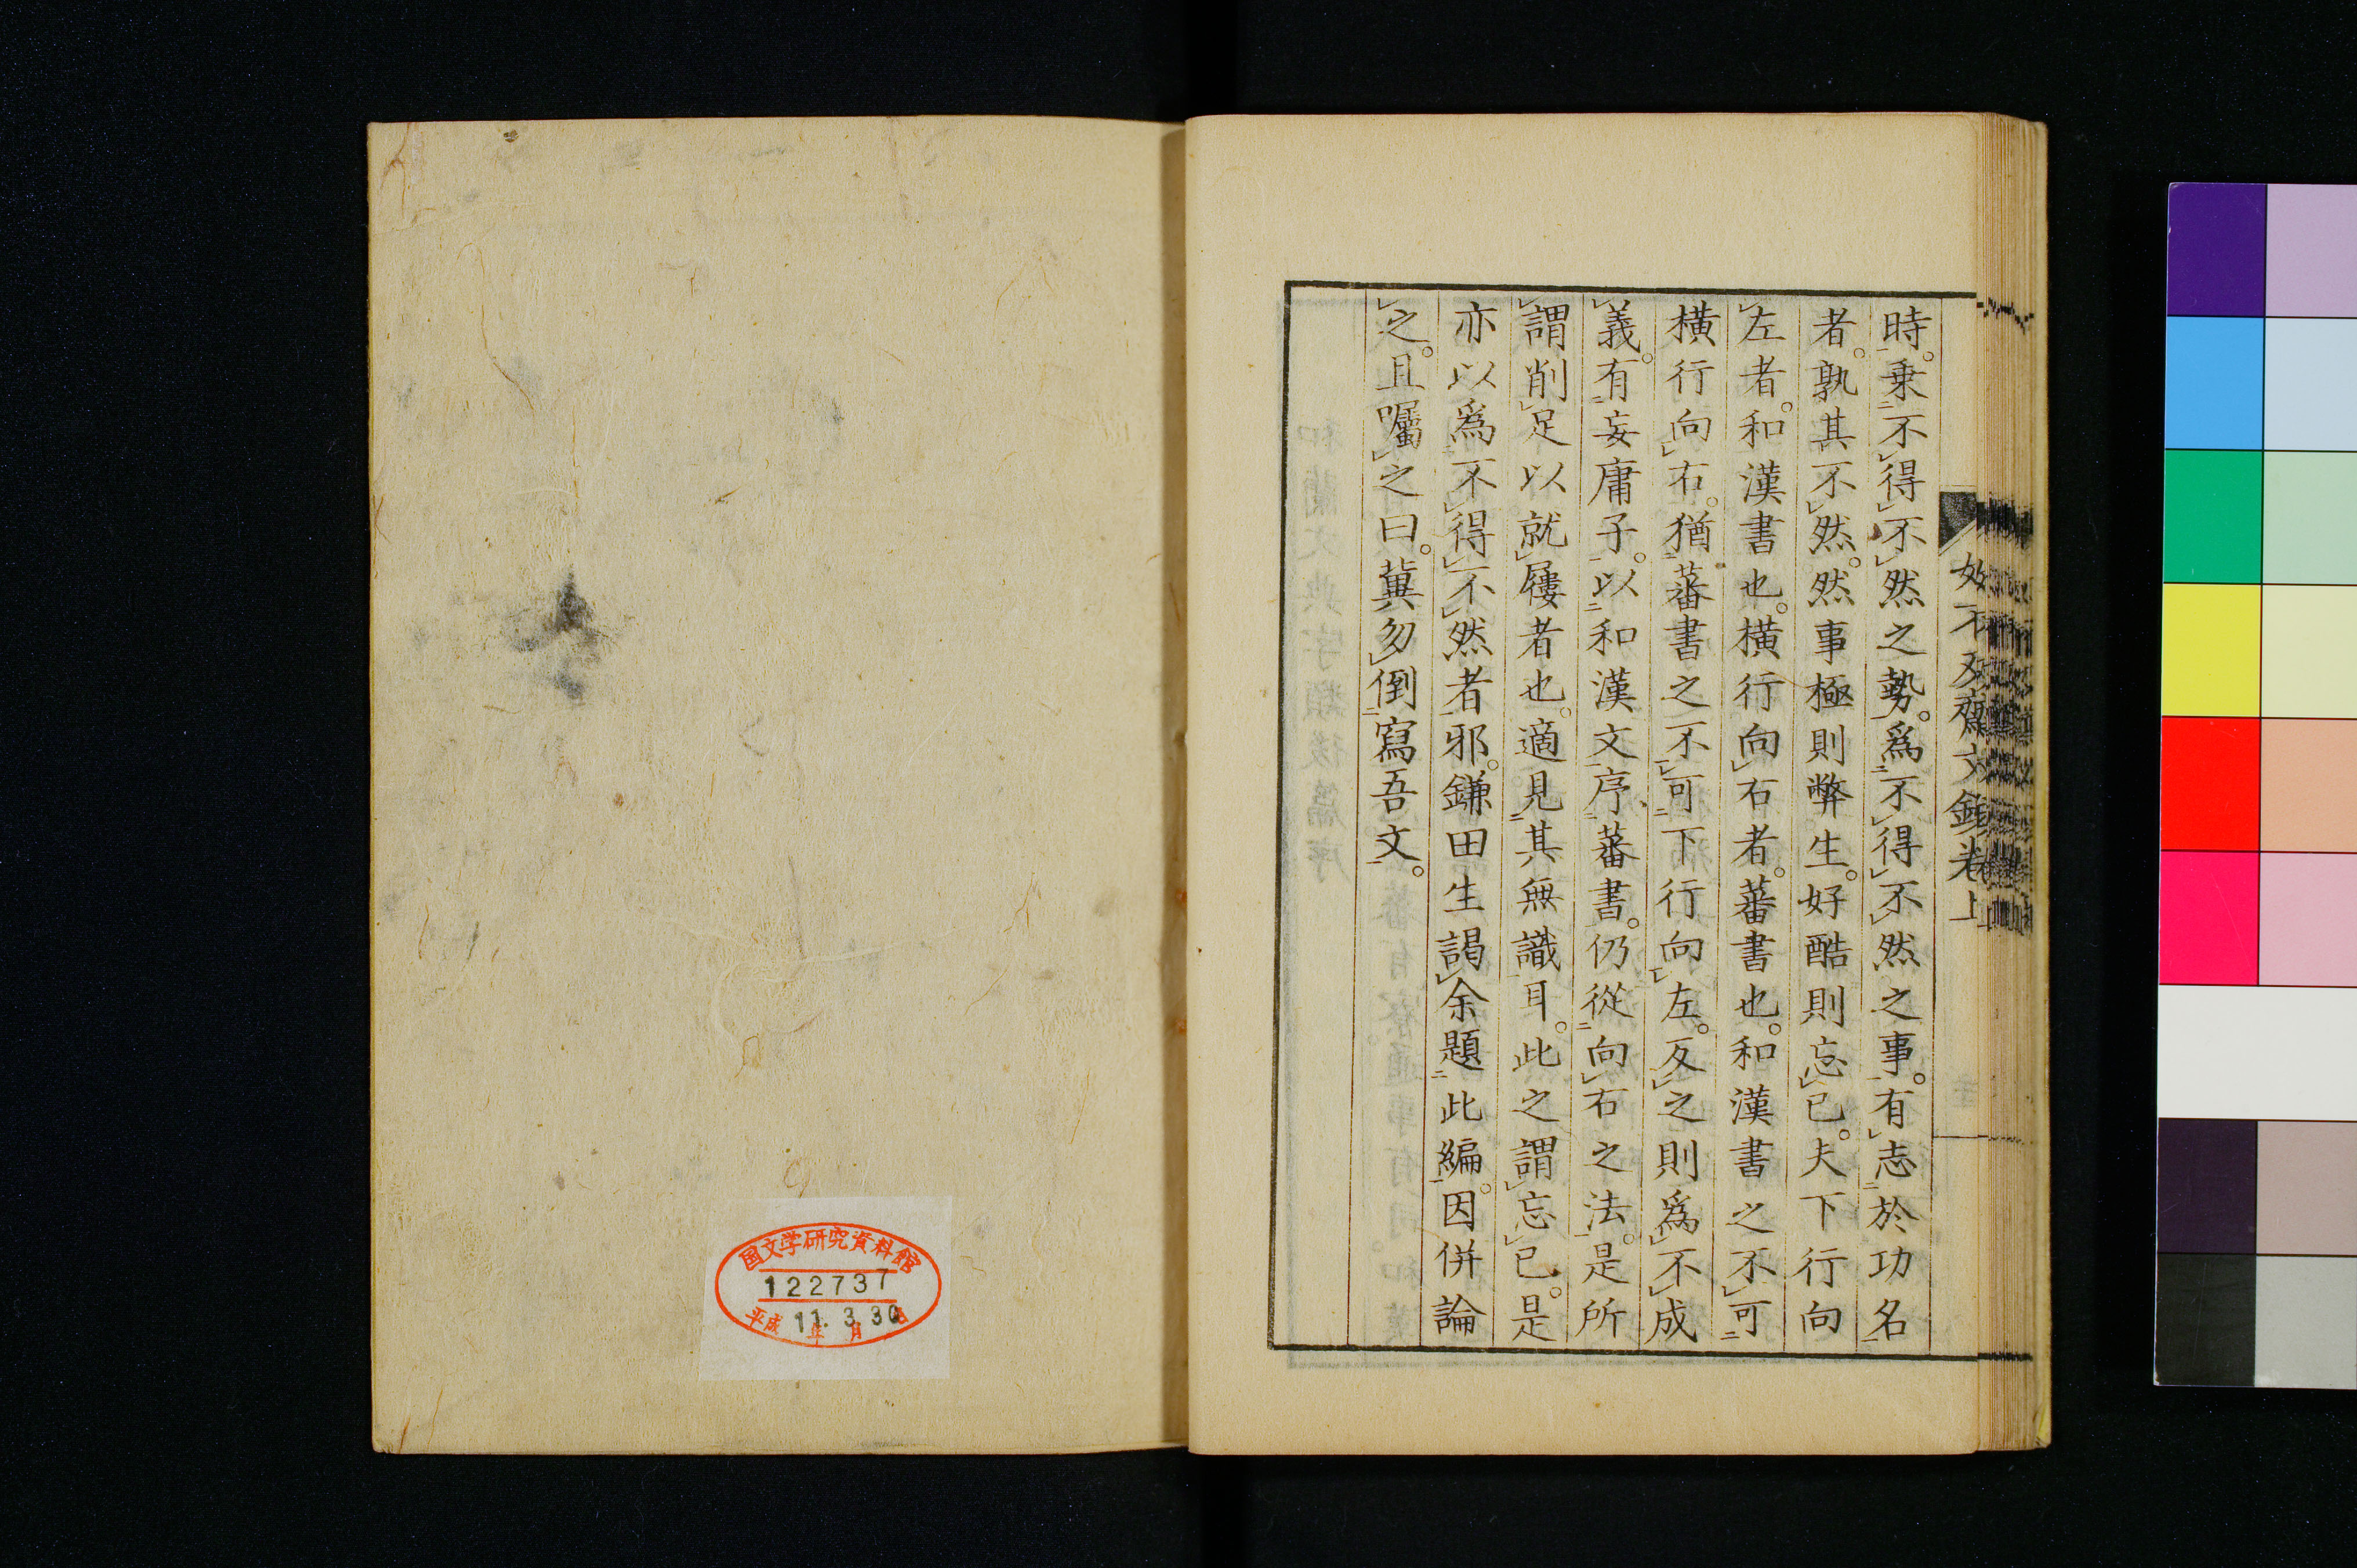 如不及齋文鈔卷上
時。乗不得不然之勢。爲不得不然之事。有志於功名
者。孰其不然。然事極則弊生。好酷則忘已。夫下行向
左者。和漢書也。橫行向右者。蕃書也。和漢書之不可
橫行向右。猶蕃書之不可下行向左。反之則爲不成
義。有妄庸子。以和漢文序蕃書。仍從向右之法。是所
謂削足以就屨者也。適見其無識耳。此之謂忘已。是
亦以爲不得不然者邪。鎌田生謁余題此編。因併論
之。且囑之曰。冀勿倒寫吾文。
国文学研究資料館
122737
平成 11年 3月 30日